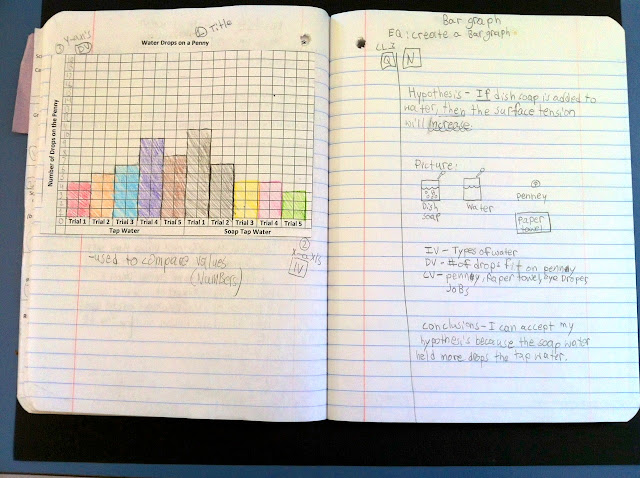 ① Title
Y-axis
③
DV
Water Drops on a Penny
Number of Drops on the Penny
Trial 1 Trial 2 Trial 3 Trial 4 Trial 5 Trial 1 Trial 2 Trial 3 Trial 4 Trial 5
Tap Water Soap Tap Water
②
X-axis
IV
-used to compare values
(Numbers)
Bar graph
EQ: create a Bar graph.
CL I
Q N
Hypothesis - If dish soap is added to
water, then the surface tension
will Increase
Picture:
Dish
soap
Water
penney
paper
towel
IV - Types of water
DV - # of drops fit on penny
CV - penny, Paper towel, eye Dropes,
JoBs
conclusions - I can accept my
hypothesis because the soap water
held more drops the tap water.